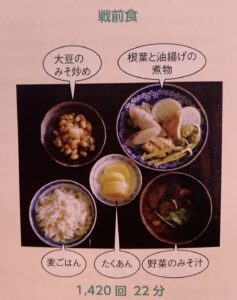 戦前食
大豆の
みそ炒め
根菜と油揚げの
煮物
麦ごはん
たくあん
野菜のみそ汁
1,420回 22分